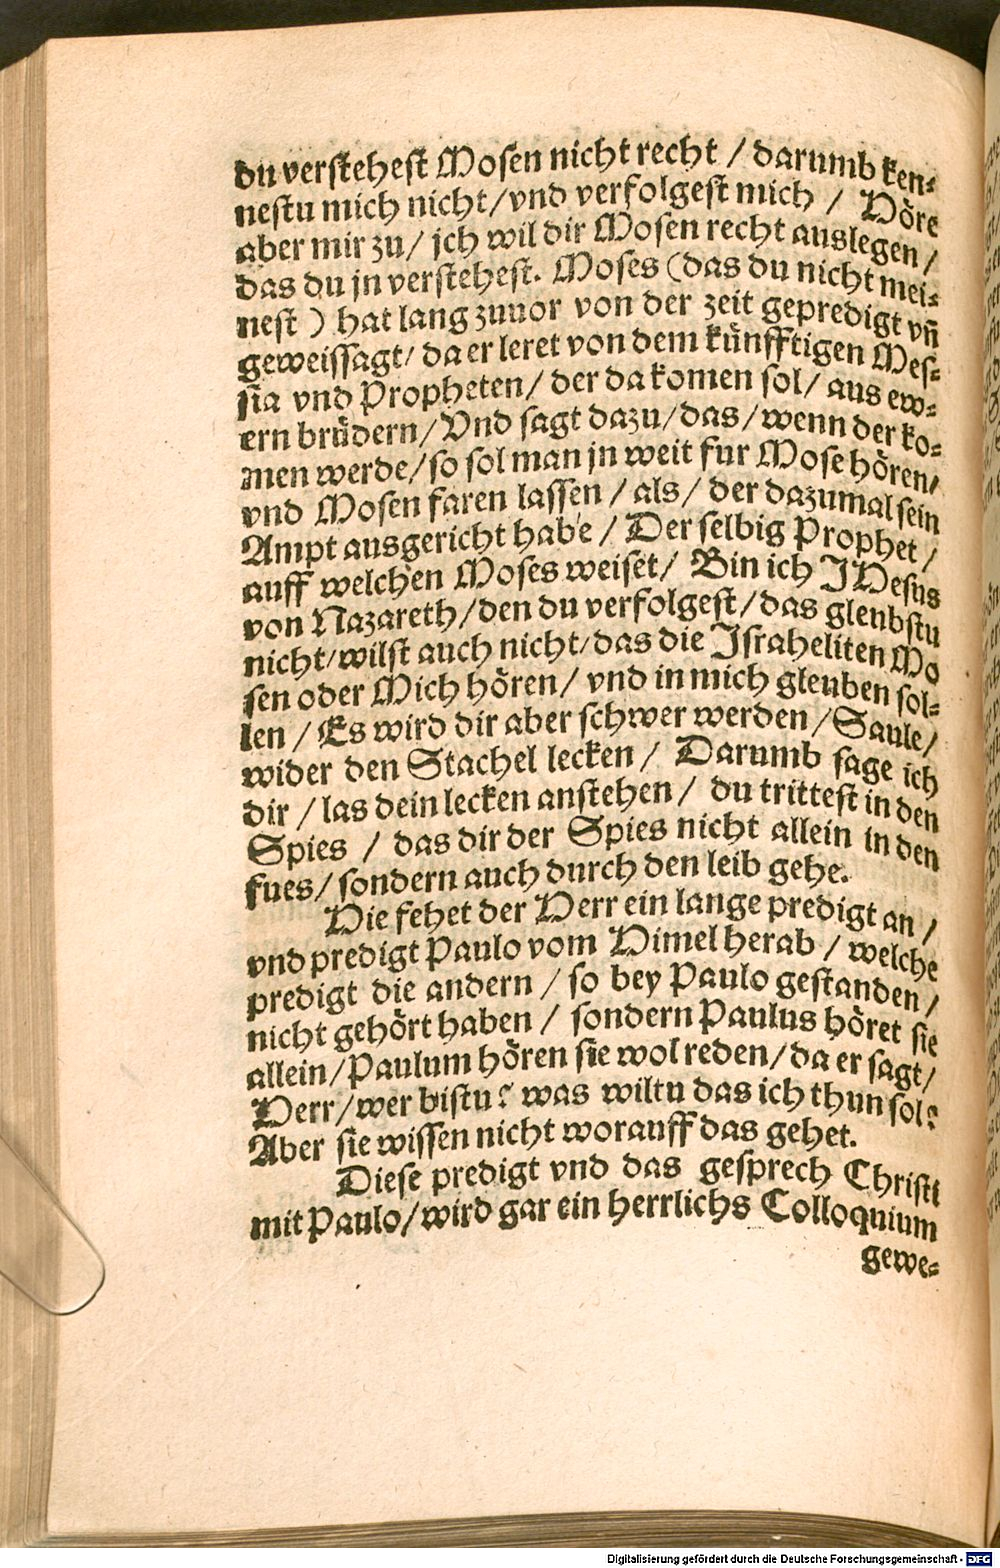 du verstehest Mosen nicht recht / darumb ken-
nestu mich nicht/vnd verfolgest mich / Höre
aber mir zu/ jch wil dir Mosen recht auslegen /
das du jn verstehest. Moses (das du nicht mei-
nest ) hat lang zuuor von der zeit gepredigt vñ
geweissagt/ da er leret von dem künfftigen Mes-
sia vnd Propheten/ der da komen sol/ aus ew-
ern brüdern/ Vnd sagt dazu/das/wenn der ko-
men werde/so sol man jn weit fur Mose hören/
vnd Mosen faren lassen / als/ der dazumal sein
Ampt ausgericht habe / Der selbig Prophet /
auff welchen Moses weiset/ Bin ich JHesus
von Nazareth/den du verfolgest/das gleubstu
nicht/wilst auch nicht/das die Israheliten Mo
sen oder Mich hören/ vnd in mich gleuben sol-
len / Es wird dir aber schwer werden /Saule/
wider den Stachel lecken / Darumb sage ich
dir / las dein lecken anstehen / du trittest in den
Spies / das dir der Spies nicht allein in den
fues/ sondern auch durch den leib gehe.
Hie fehet der Herr ein lange predigt an /
vnd predigt Paulo vom Himel herab / welche
predigt die andern / so bey Paulo gestanden /
nicht gehört haben / sondern Paulus höret sie
allein/Paulum hören sie wol reden/da er sagt/
Herr/wer bistu? was wiltu das ich thun sol?
Aber sie wissen nicht worauff das gehet.
Diese predigt vnd das gesprech Christi
mit Paulo/wird gar ein herrlichs Colloquium
gewe-
Digitalisierung gefördert durch die Deutsche Forschungsgemeinschaft - DFG